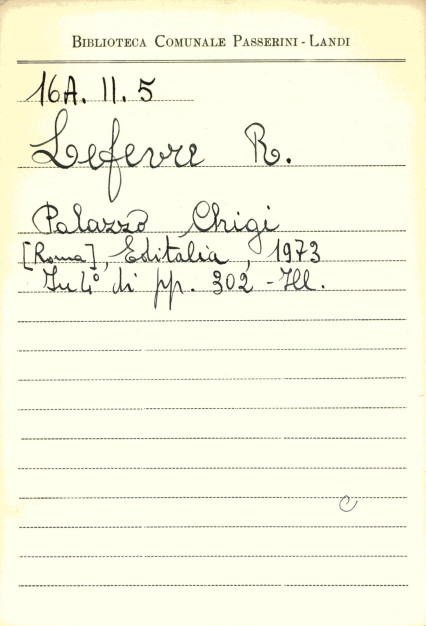 BIBLIOTECA COMUNALE PASSERINI - LANDI
16A. II. 5
Lefevre R.
Palazzo Chigi
[Roma], Editalia, 1973
In 4° di pp. 302 - Ill.
C